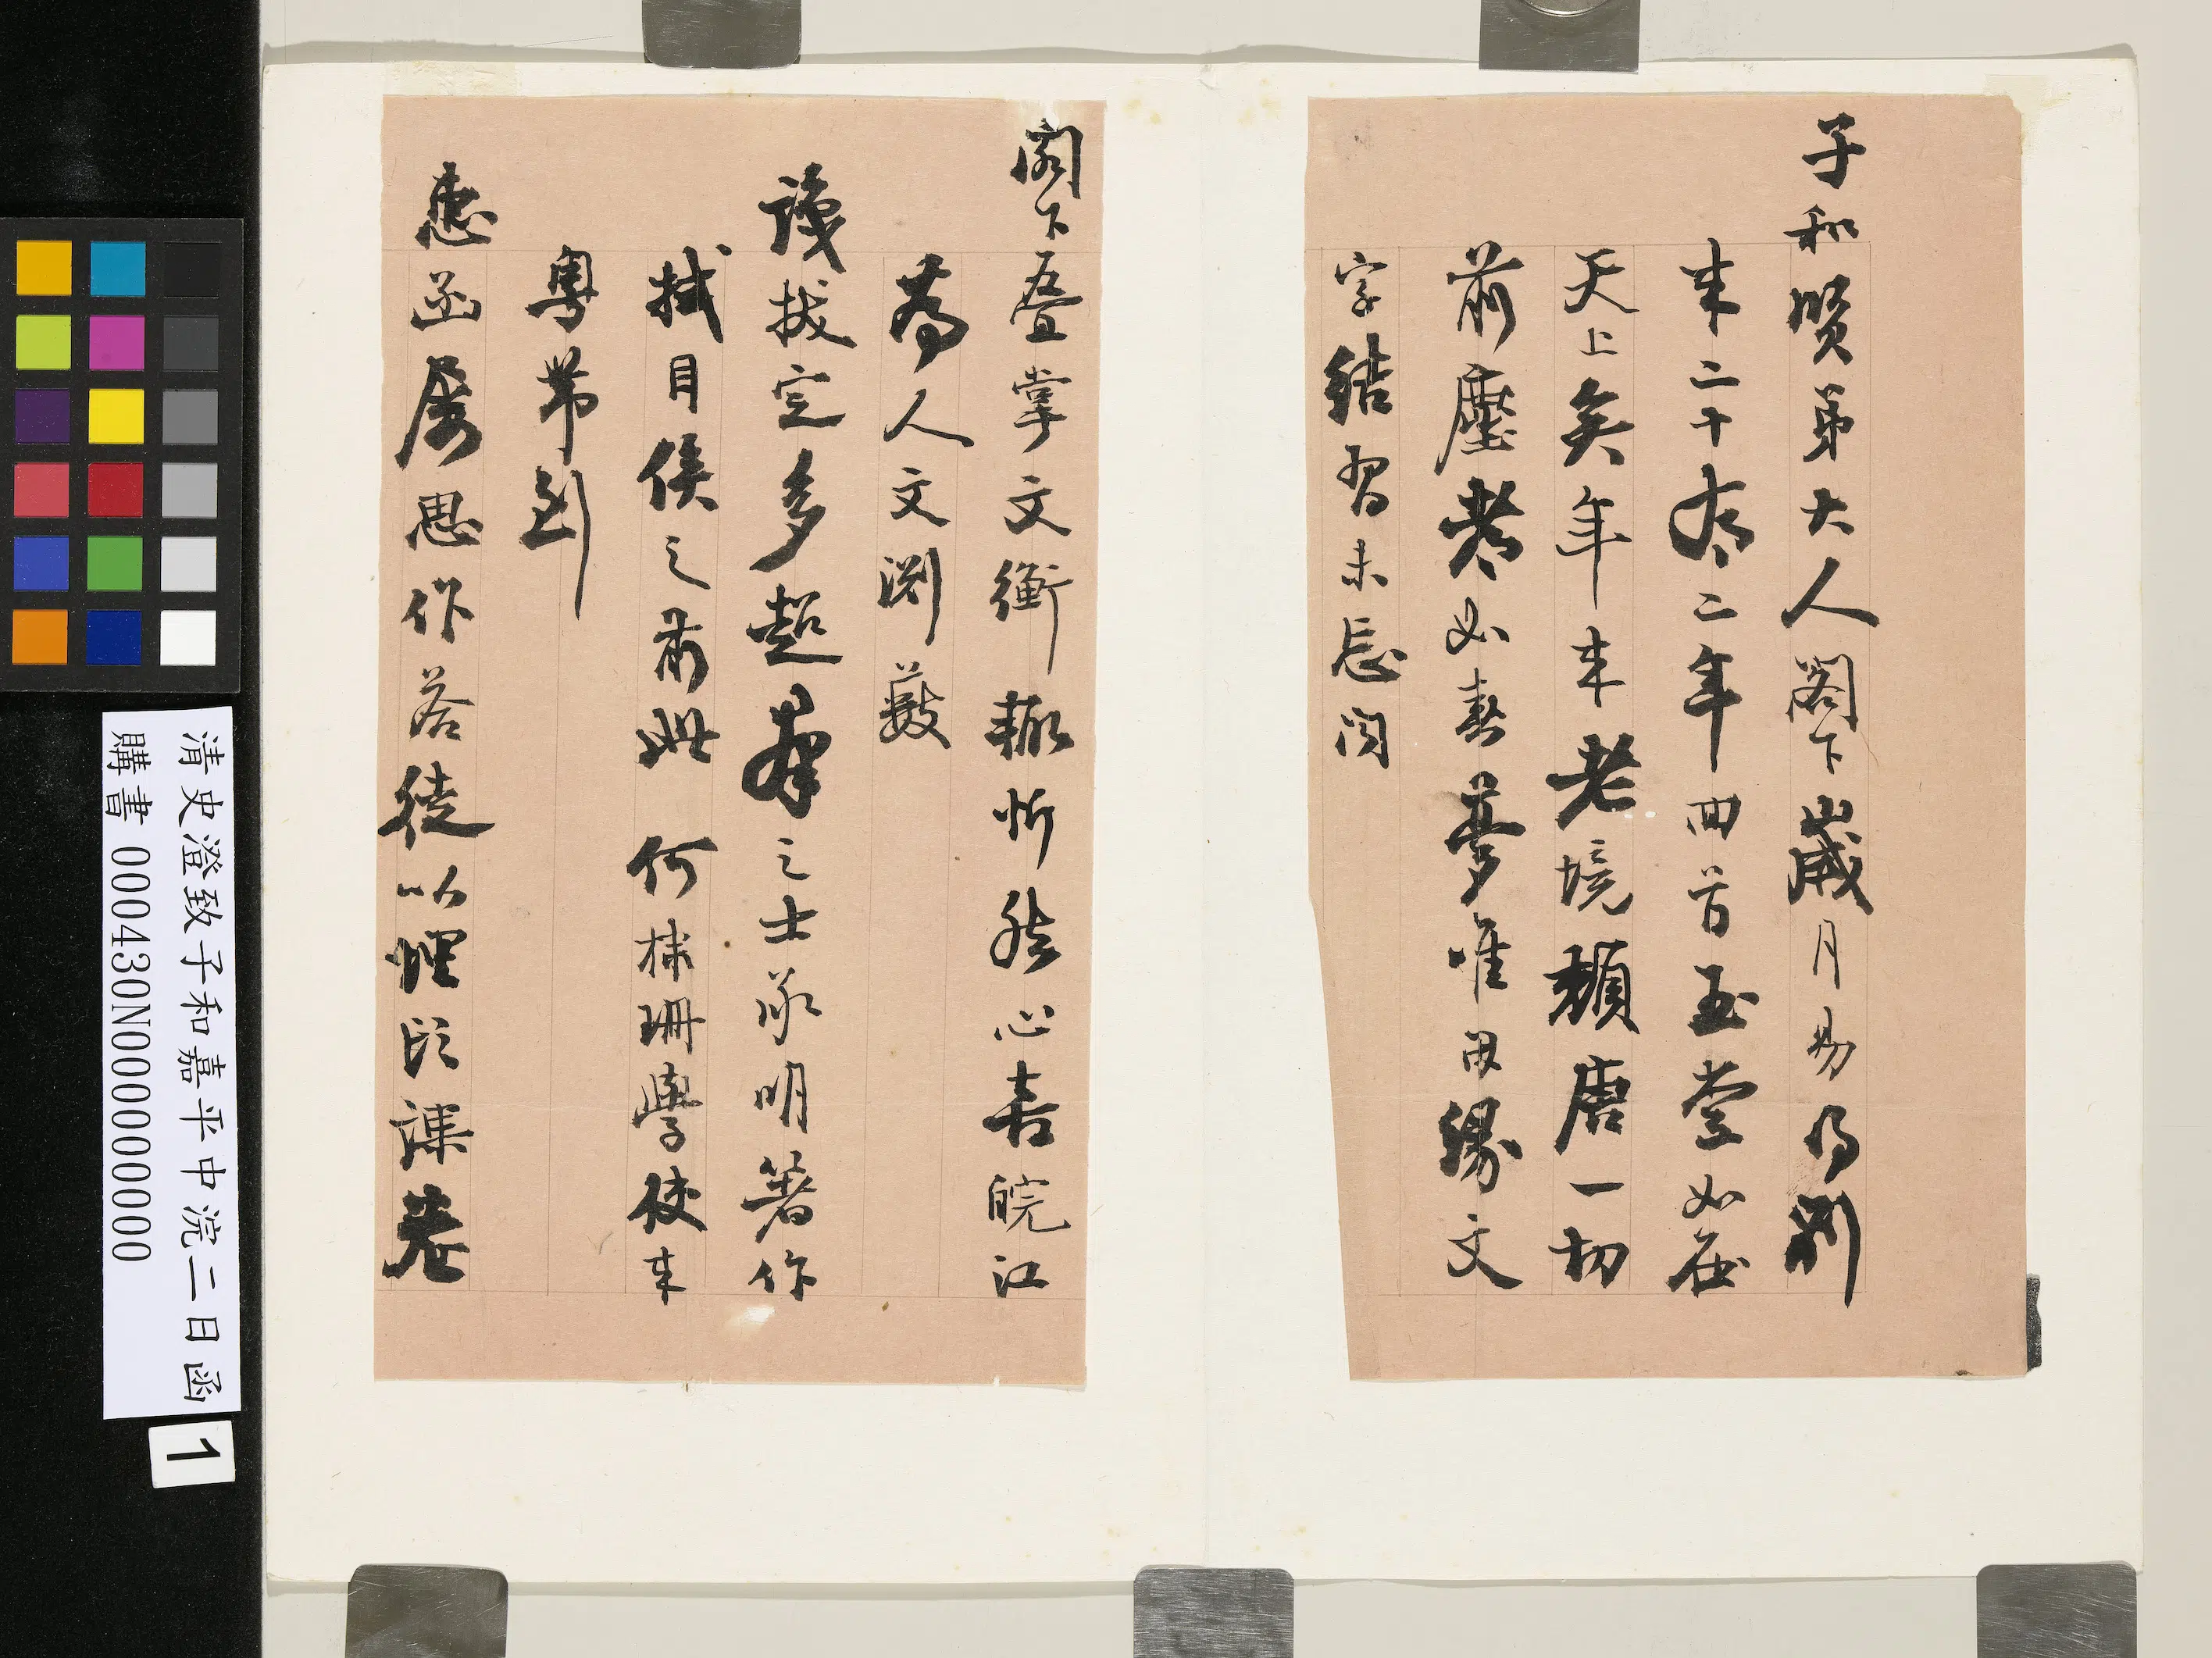 子和賢弟大人閣下歲月易得別
來二十有二年回首玉堂如在
天上矣年來老境頹唐一切
前塵老如春夢唯因緣文
字結習未忘聞
閣下疊掌文衡輒忻然心喜皖江
為人文淵藪
識拔定多超羣之士承明著作
拭目俟之前此何棣珊學使來
粵帶到
惠函屢思作答徒以經課卷
清史澄致子和嘉平中浣二日函
購書 000430N000000000
1